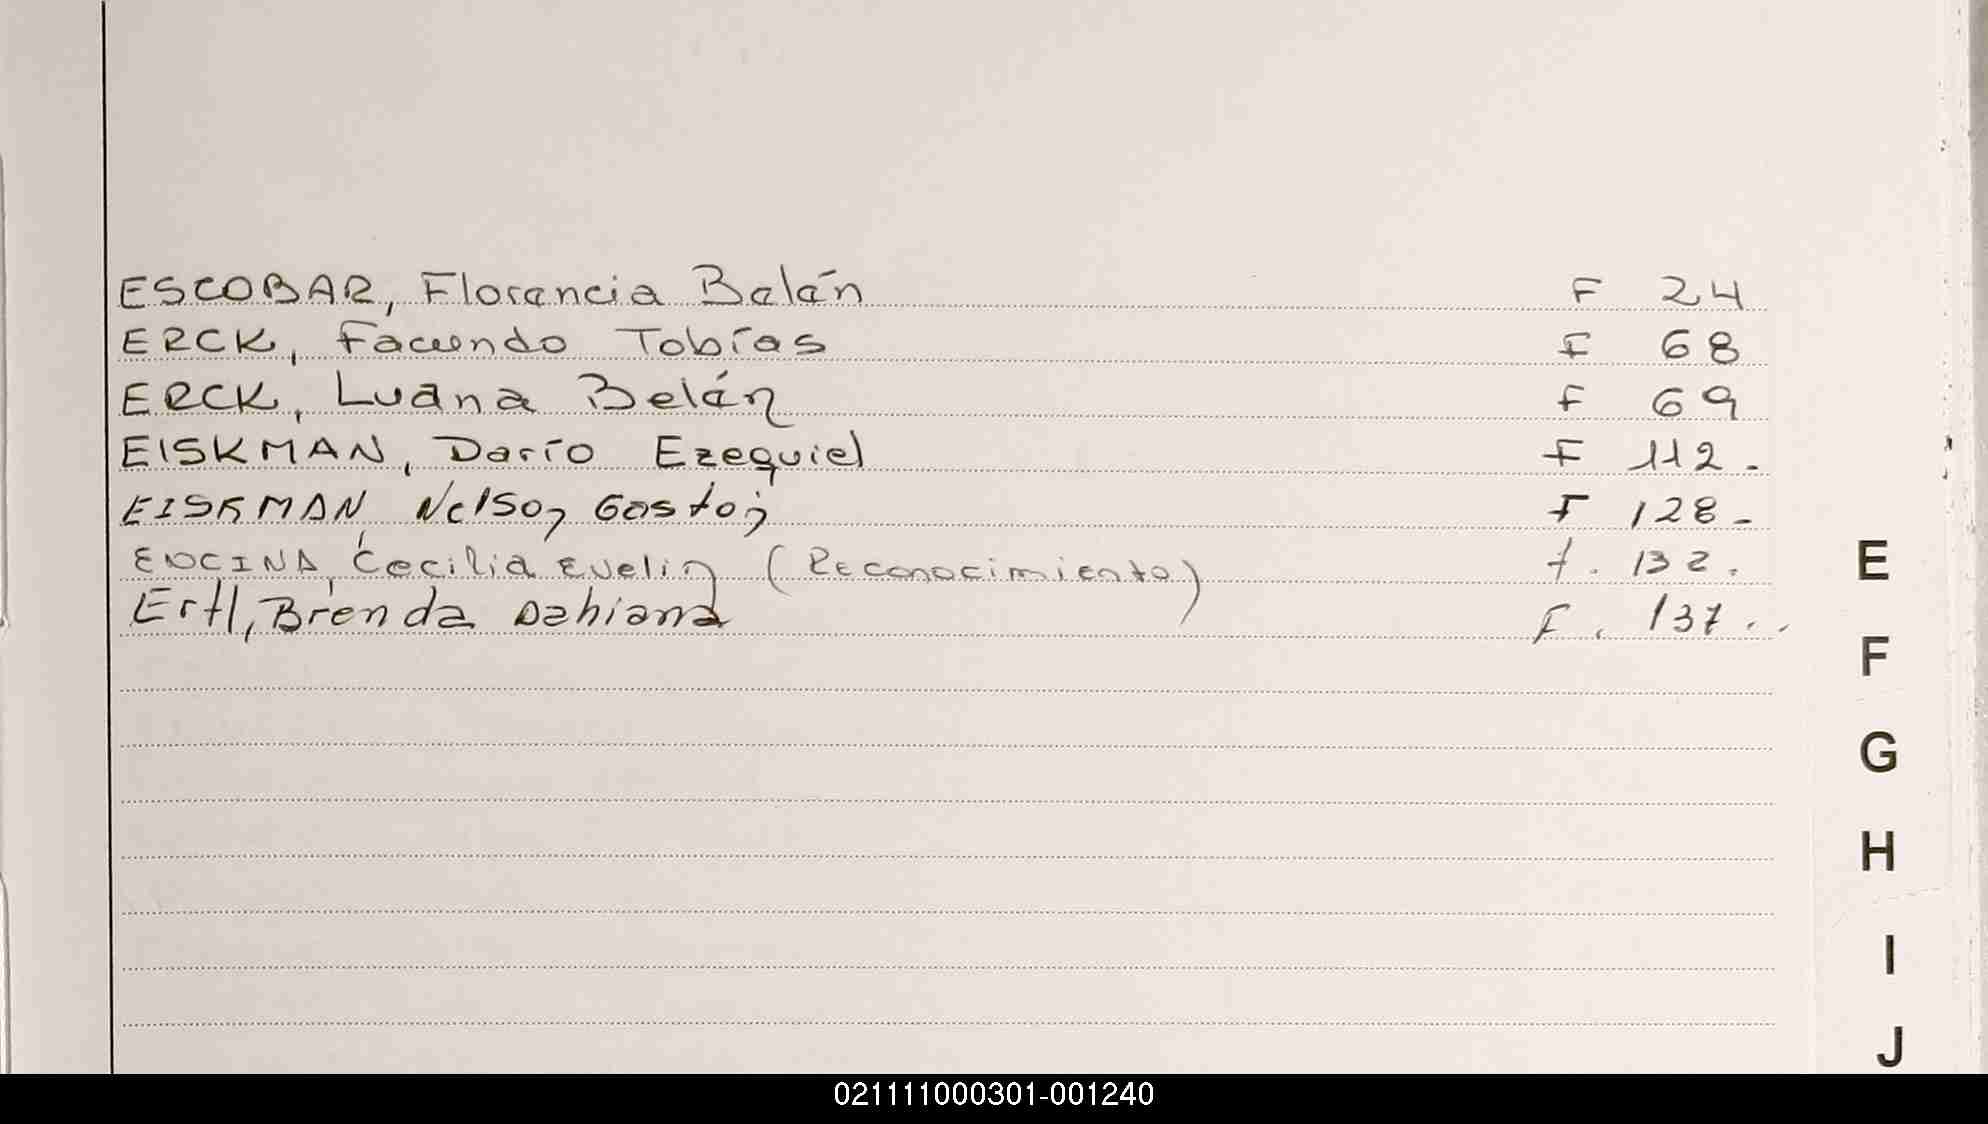 ESCOBAR, Florencia Belén F 24
ERCK, Facundo Tobías F 68
ERCK, Luana Belén F 69
EISKMAN, Darío Ezequiel F 112.
EISKMAN, Nelson Gastón F 128-
ENCINA, Cecilia Evelin (Reconocimiento) f. 132.
Ertl, Brenda Dahiana F. 137..
E
F
G
H
I
J
021111000301-001240